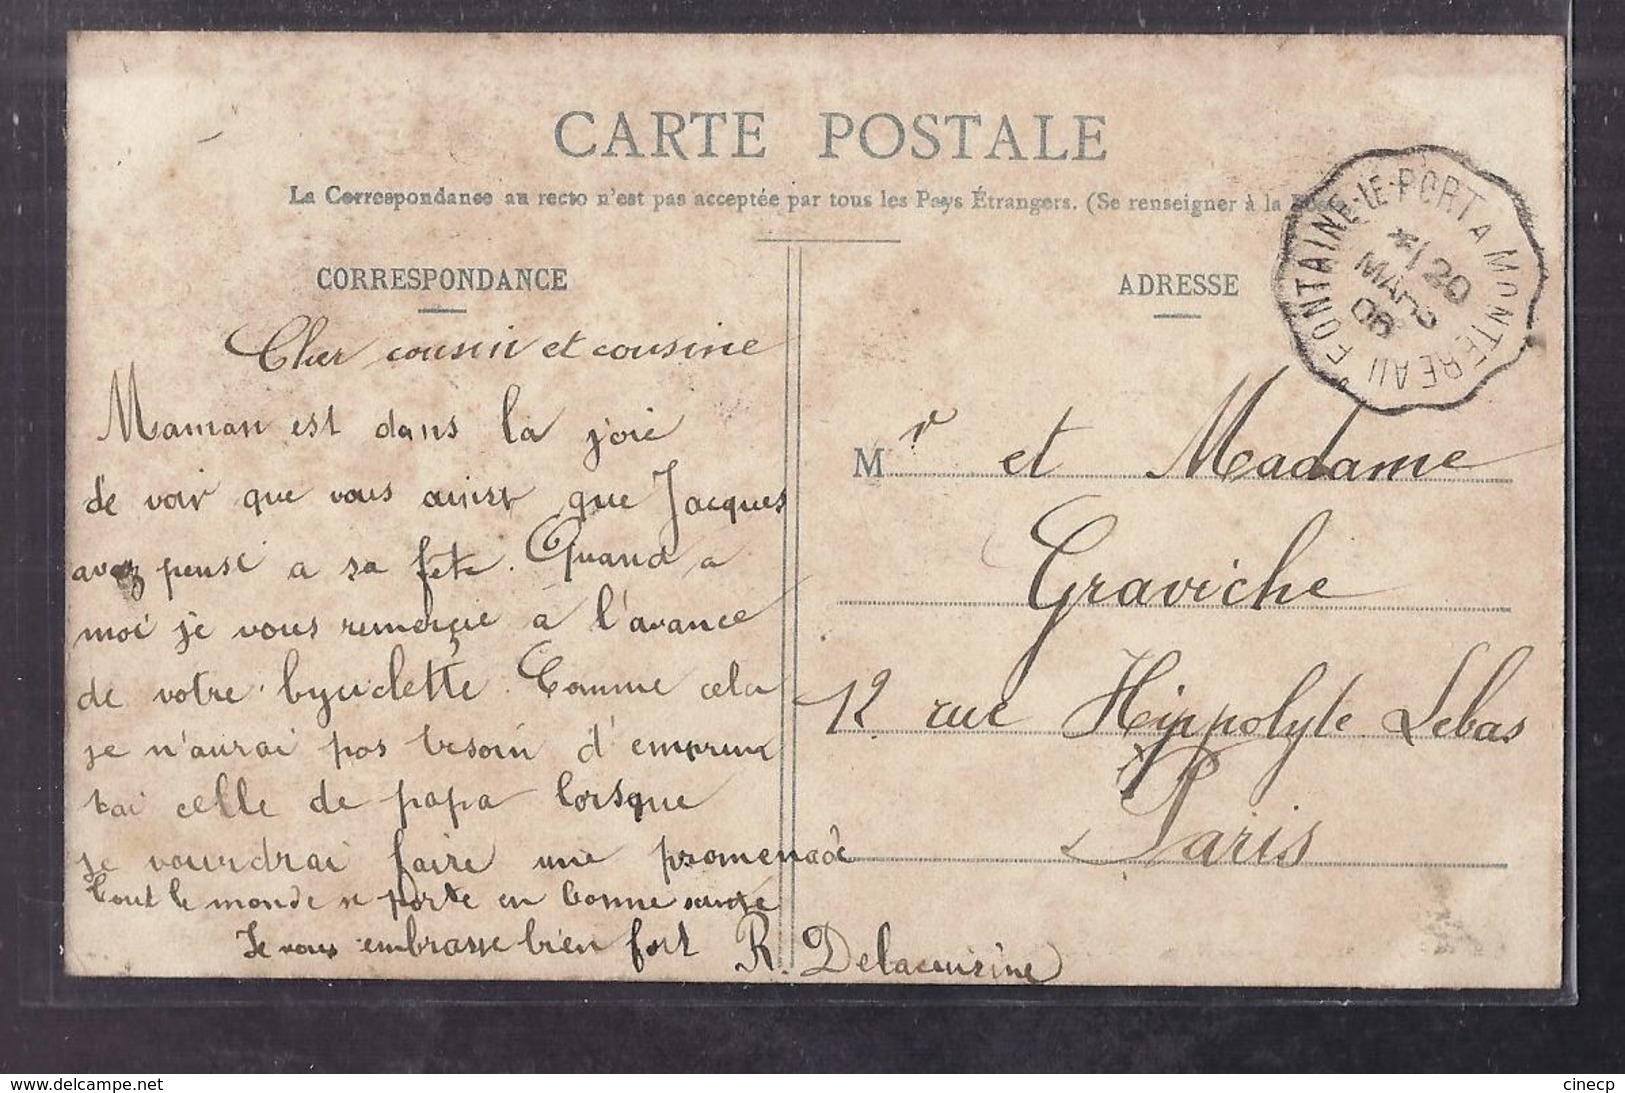 CARTE POSTALE
La Correspondance au recto n'est pas acceptée par tous les Pays Étrangers. (Se renseigner à la
FONTAINE-LE-PORT A MONTEREAU
20
MARS
06
CORRESPONDANCE
Cher cousin et cousine
Maman est dans la joie
de voir que vous ainsi que Jacques
avez pensé a sa fête. Quand a
moi je vous remerçie à l'avance
de votre byciclette. Comme cela
je n'aurai pas besoin d'emprun
tai celle de papa lorsque
je vourdrai faire une promenade
tout le monde se porte en bonne santé
Je vous embrasse bien fort R. Delacuisine
ADRESSE
Mr et Madame
Graviche
12 rue Hippolyte Lebas
Paris
delcampe.net
cinecp